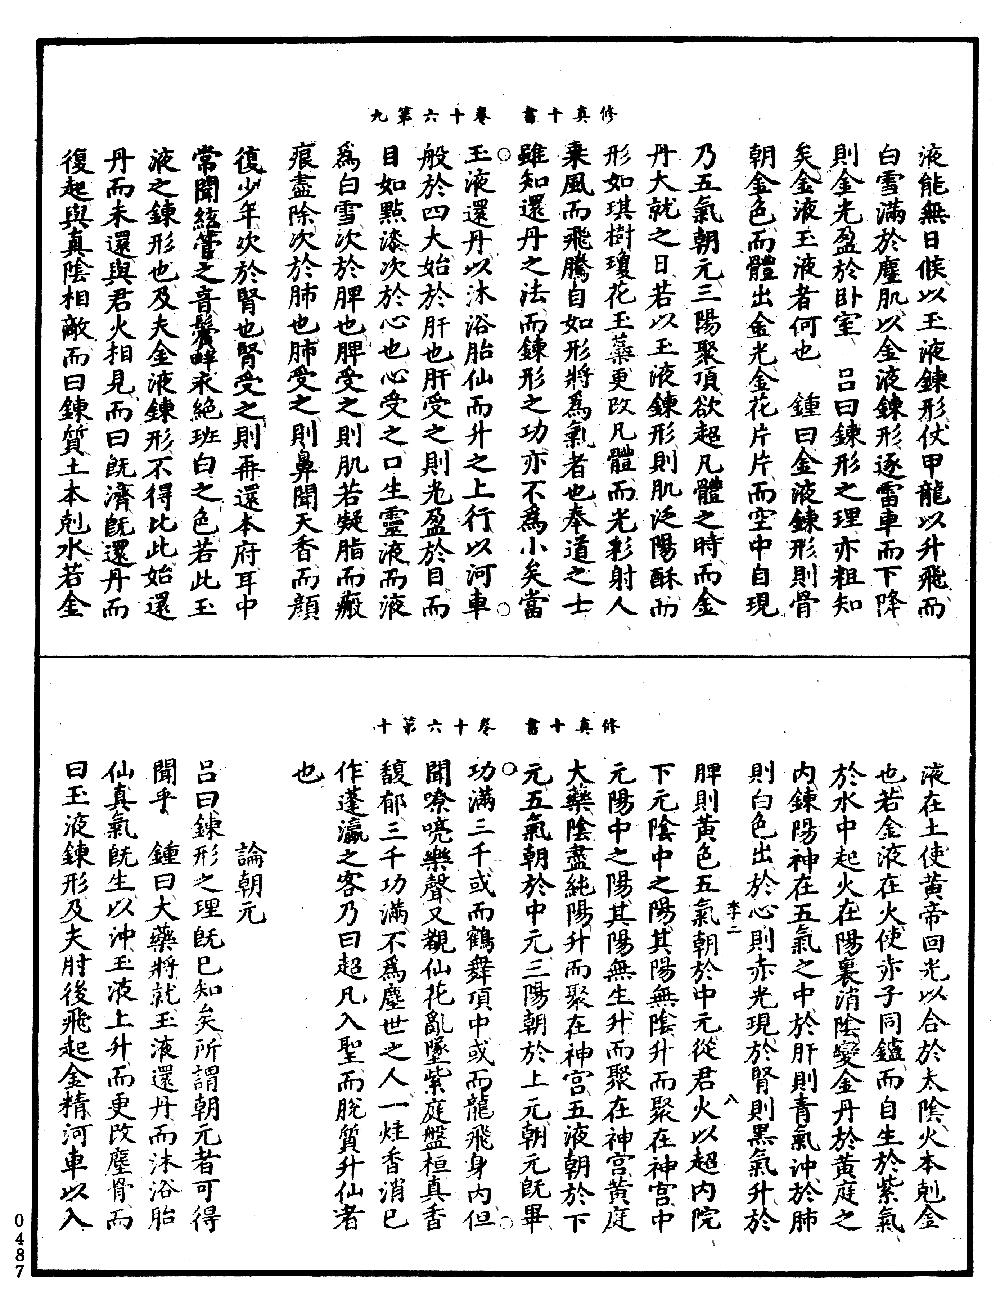 修真十書　卷十六第九
液能無日候以玉液鍊形仗甲龍以升飛而
白雪滿於塵肌以金液鍊形逐雷車而下降
則金光盈於卧室　呂曰鍊形之理亦粗知
矣金液玉液者何也　鍾曰金液鍊形則骨
朝金色而體出金光金花片片而空中自現
乃五氣朝元三陽聚頂欲超凡體之時而金
丹大就之日若以玉液鍊形則肌泛陽酥而
形如琪樹瓊花玉蘂更改凡體而光彩射人
乗風而飛騰自如形將為氣者也奉道之士
雖知還丹之法而鍊形之功亦不為小矣當
玉液還丹以沐浴胎仙而升之上行以河車
般於四大始於肝也肝受之則光盈於目而
目如點漆次於心也心受之口生靈液而液
爲白雪次於脾也脾受之則肌若凝脂而瘢
痕盡除次於肺也肺受之則鼻聞天香而顔
復少年次於腎也腎受之則再還本府耳中
常聞絃管之音鬢畔永絶班白之色若此玉
液之鍊形也及夫金液鍊形不得比此始還
丹而未還與君火相見而曰旣濟旣還丹而
復起與真陰相敵而曰鍊質土本剋水若金
修真十書　卷十六第十
液在土使黃帝回光以合於太陰火本剋金
也若金液在火使赤子同鑪而自生於紫氣
於水中起火在陽裏消陰變金丹於黃庭之
内鍊陽神在五氣之中於肝則青氣沖於肺
則白色出於心則赤光現於腎則黑氣升於
脾則黃色五氣朝於中元從君火以超内院
李二　八
下元陰中之陽其陽無陰升而聚在神宫中
元陽中之陽其陽無生升而聚在神宫黃庭
大藥陰盡純陽升而聚在神宫五液朝於下
元五氣朝於中元三陽朝於上元朝元旣畢
功滿三千或而鶴舞頂中或而龍飛身内但
聞嘹喨樂聲又觀仙花亂墜紫庭盤桓真香
馥郁三千功滿不爲塵世之人一炷香消已
作蓬瀛之客乃曰超凡入聖而脱質升仙者
也
論朝元
呂曰鍊形之理旣已知矣所謂朝元者可得
聞乎　鍾曰大藥將就玉液還丹而沐浴胎
仙真氣旣生以沖玉液上升而更改塵骨而
曰玉液鍊形及夫肘後飛起金精河車以入
0487